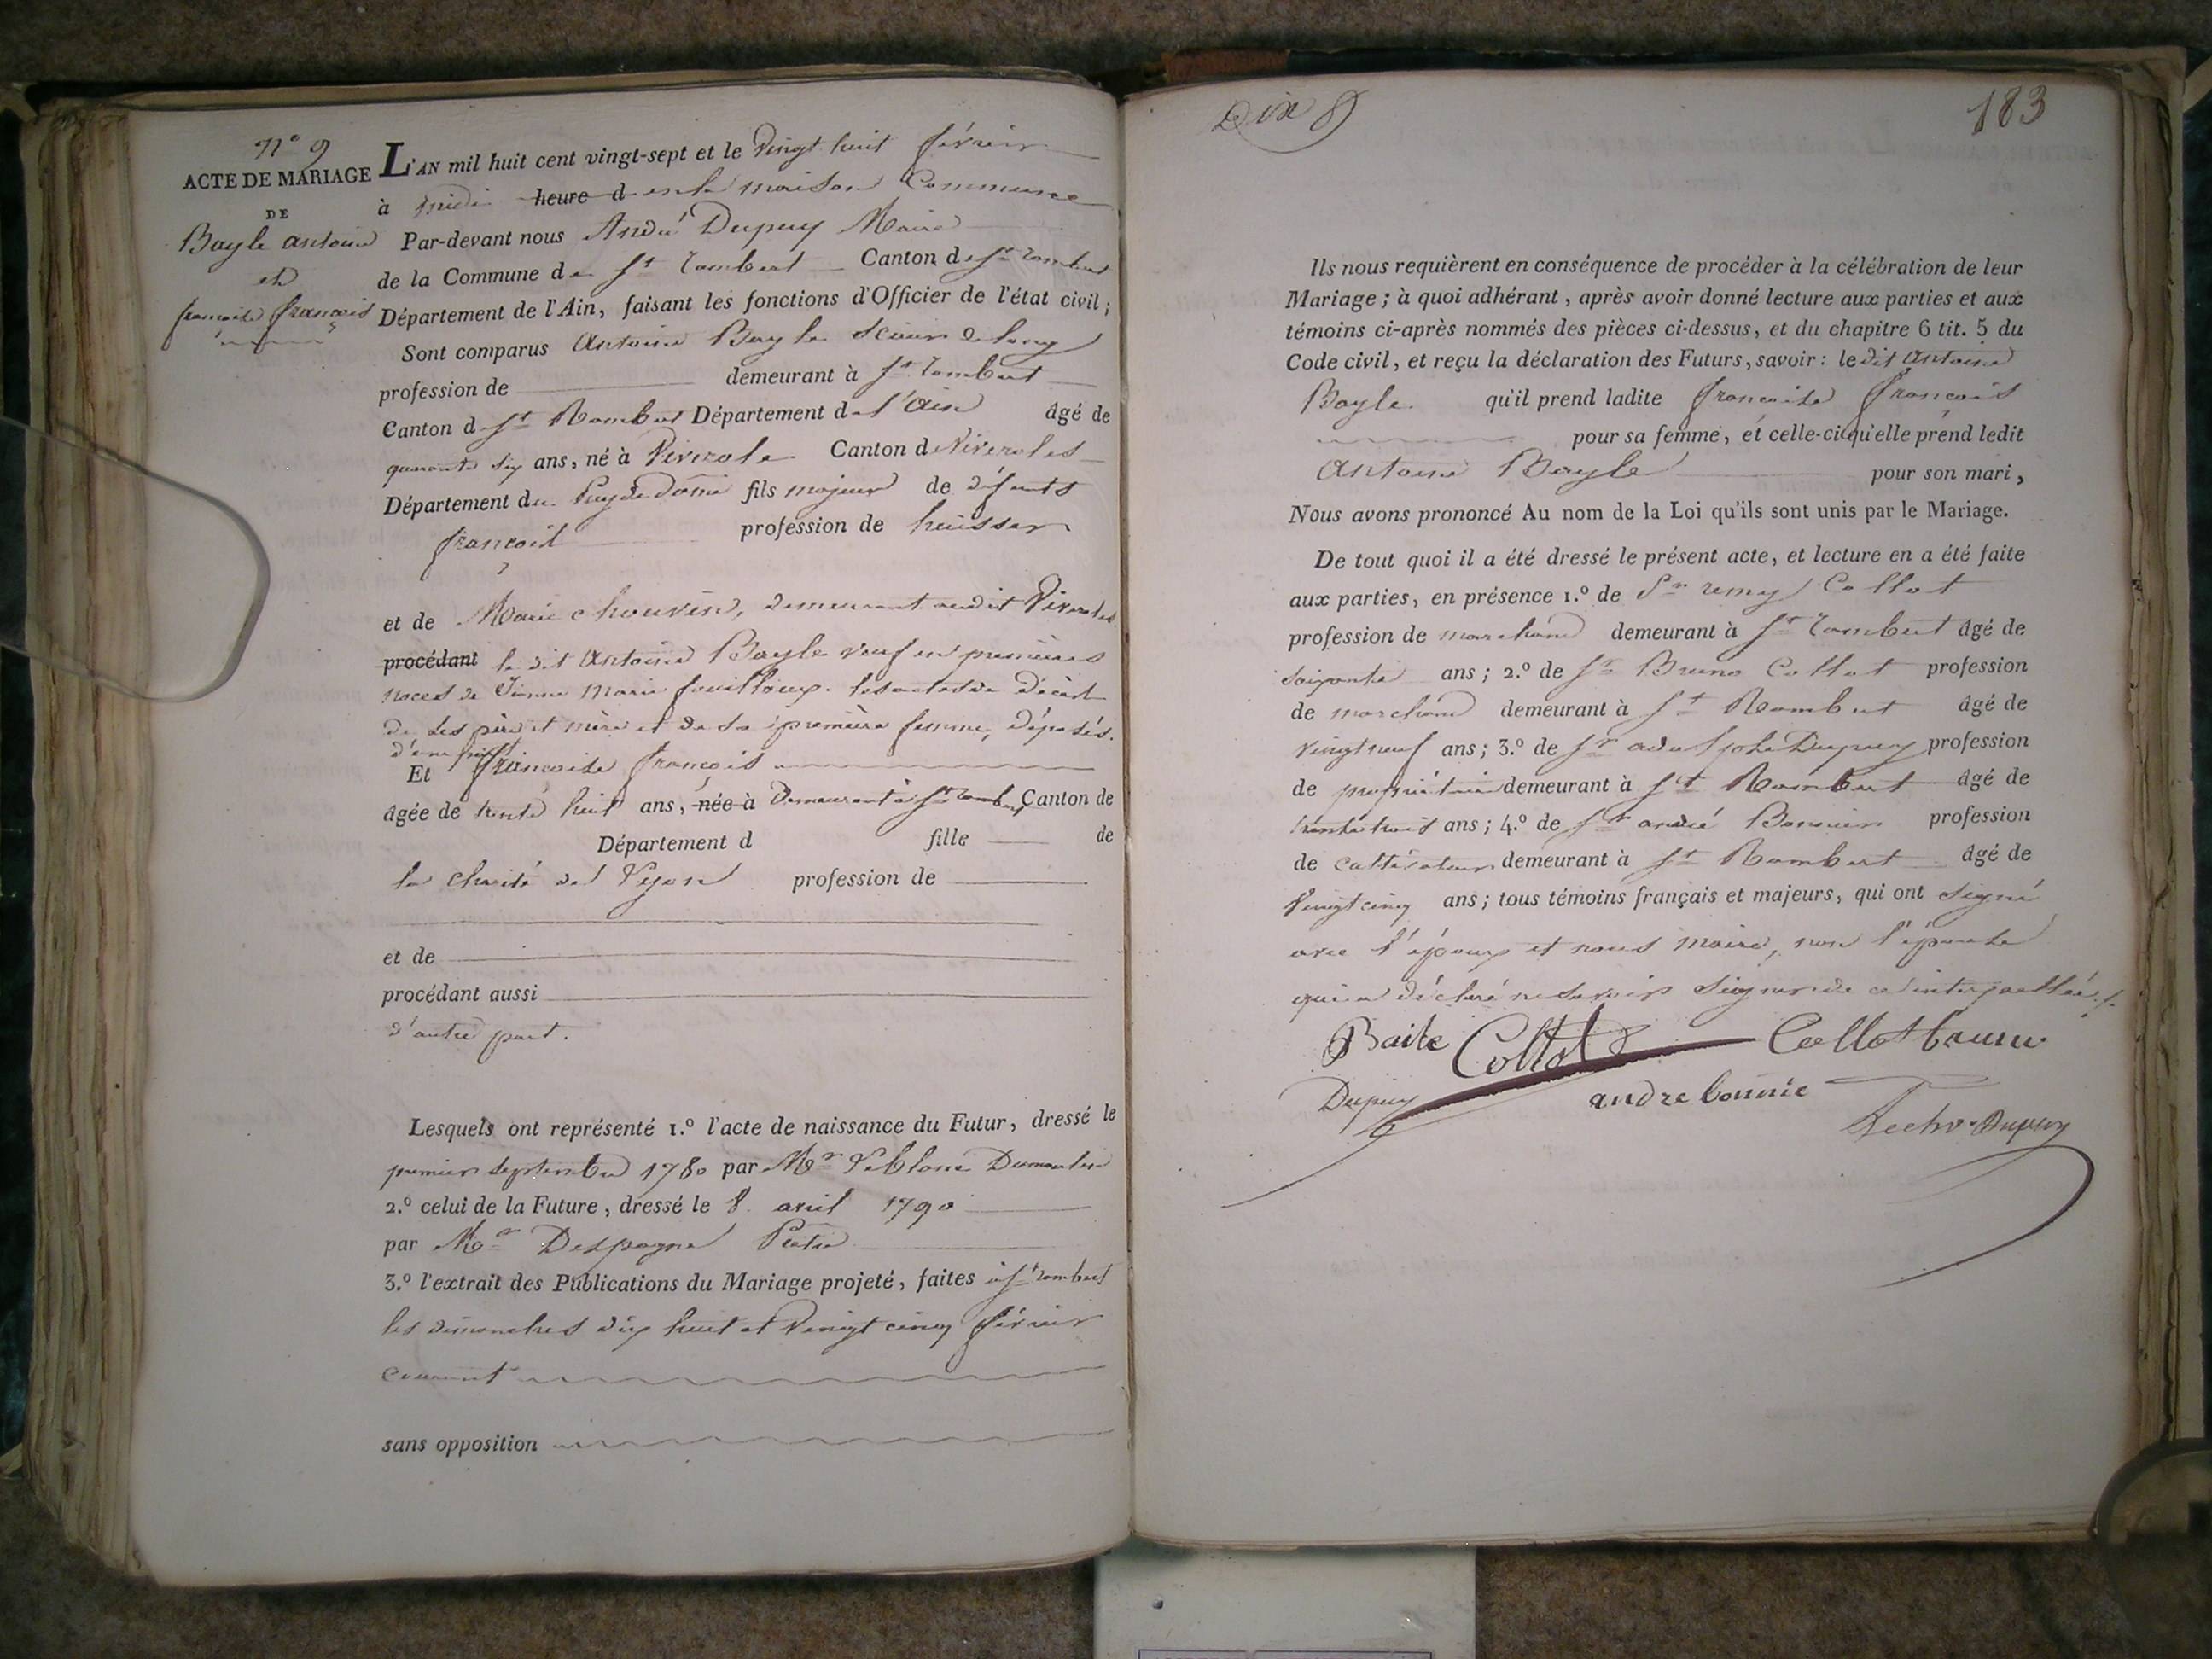 N° 9
ACTE DE MARIAGE
DE
Bayle antoine
et
francoise françois
L'AN mil huit cent vingt-sept et le Vingt huit février
à midi heure d en la maison Commune
Par-devant nous André Dupuy Maire
de la Commune de St Rambert Canton de St rambert
Département de l'Ain, faisant les fonctions d'Officier de l'état civil;
Sont comparus Antoine Bayle Scieur de long
profession de demeurant à St Rambert
Canton de St Rambert Département de l'Ain âgé de
quarante six ans, né à Viverole Canton de Viveroles
Département du Puy de Dôme fils majeur de défunts
françois profession de huissier
et de Marie chouvin, demeurant audit Viveroles
procédant le dit Antoine Bayle veuf en premières
noces de Jeanne Marie fouilloux. les actes de décès
de ses père et mère et de sa première femme, déposés.
d'une part
Et francoise françois
âgée de trente huit ans, née à demeurant à St rambert Canton de
Département d fille de
la charité de Lyon profession de
et de
procédant aussi
d'autre part.
Lesquels ont représenté 1.º l'acte de naissance du Futur, dressé le
premier septembre 1780 par Mr Leblanc Dumoulin
2.º celui de la Future, dressé le 8 avril 1790
par Mr Despagne Prêtre
3.º l'extrait des Publications du Mariage projeté, faites à St rambert
les dimanches dix huit et Vingt cinq février
courant
sans opposition
Dix 8
183
Ils nous requièrent en conséquence de procéder à la célébration de leur
Mariage; à quoi adhérant, après avoir donné lecture aux parties et aux
témoins ci-après nommés des pièces ci-dessus, et du chapitre 6 tit. 5 du
Code civil, et reçu la déclaration des Futurs, savoir: le dit Antoine
Bayle. qu'il prend ladite francoise françois
pour sa femme, et celle-ci qu'elle prend ledit
Antoine Bayle pour son mari,
Nous avons prononcé Au nom de la Loi qu'ils sont unis par le Mariage.
De tout quoi il a été dressé le présent acte, et lecture en a été faite
aux parties, en présence 1.º de Sr remy Collot
profession de marchand demeurant à St rambert âgé de
soixante ans; 2.º de Sr Bruno Collot profession
de marchand demeurant à St Rambert âgé de
vingt neuf ans; 3.º de Sr Dupuy profession
de propriétaire demeurant à St Rambert âgé de
trente trois ans; 4.º de Sr andré Bonnier profession
de cultivateur demeurant à St Rambert âgé de
Vingt cinq ans; tous témoins français et majeurs, qui ont signé
avec l'époux et nous maire, non l'épouse
qui a déclaré ne savoir signer de ce interpellée./.
Baile Collot Collot bruno
Dupuy andre bonnie
Dupuy